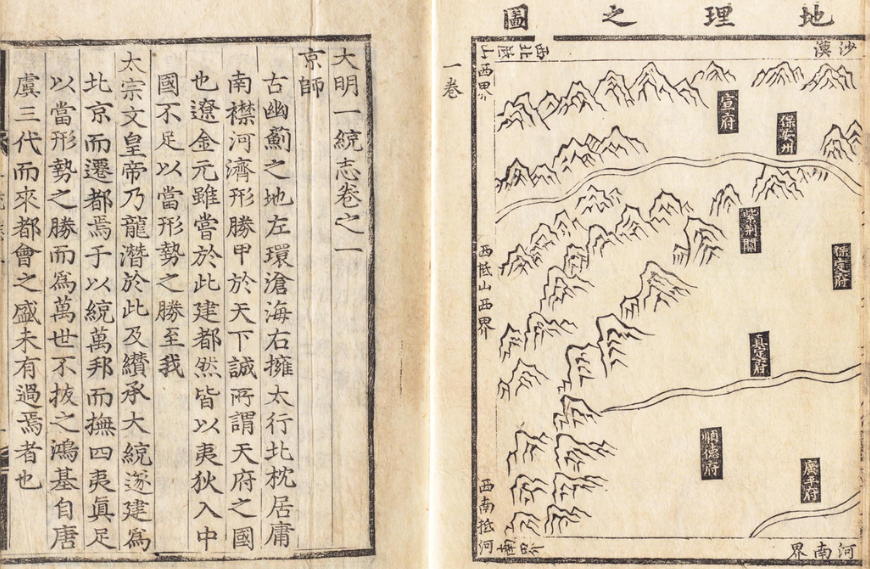 地理之圖
沙漠
西北抵
山西界
宣府
保安州
紫荊關
保定府
西抵山西界
真定府
順德府
廣平府
西南抵河
河南界
一卷
大明一統志卷之一
京師
古幽薊之地左環滄海右擁太行北枕居庸
南襟河濟形勝甲於天下誠所謂天府之國
也遼金元雖嘗於此建都然皆以夷狄入中
國不足以當形勢之勝至我
太宗文皇帝乃龍潛於此及纘承大統遂建為
北京而遷都焉于以統萬邦而撫四夷真足
以當形勢之勝而為萬世不拔之鴻基自唐
虞三代而來都會之盛未有過焉者也